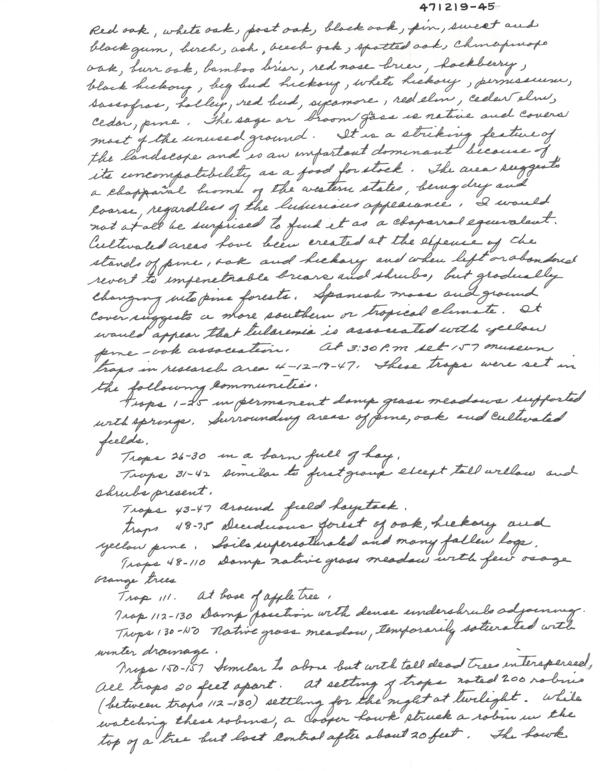 471219-45
Red oak, white oak, post oak, black oak, pin, sweet and
black gum, birch, ash, beech oak, spotted oak, chinapinoxe
oak, burr oak, bamboo briar, red nose brier, hackberry,
black hickory, big bud hickory, white hickory, permissium,
Sassofras, holley, red bud, sycamore, red elm, cedar elm,
cedar, pine. The sage or broom gass is native and covers
most of the unused ground. It is a striking featue of
the landscape and is an important dominant because of
its uncompatibility as a food for stock. The area suggests
a chapparal biome of the western states, being dry and
coarse, regardless of the luxurious appearance. I would
not at all be surprised to find it as a chaparral equivalent.
Cultivated areas have been created at the expense of the
stands of pine, oak and hickory and when left or abandoned
revert to impenetrable briars and shrubs, but gradually
changing into pine forests. Spanish moss and ground
cover suggests a more southern or tropical climate. It
would appear that tularemia is associated with yellow
pine-oak association. At 3:30 P.M set 157 museum
traps in research area 4-12-19-47. These traps were set in
the following communities.
Traps 1-25 in permanent damp grass meadows supported
with springs. Surrounding areas of pine, oak and cultivated
fields.
Traps 26-30 in a barn full of hay.
Traps 31-42 similar to first group except tall willow and
shrubs present.
Traps 43-47 around field haystack.
traps 48-75 Deciduous forest of oak, hickory and
yellow pine. Soils supersaturated and many fallen logs.
Traps 48-110 Damp native grass meadow with few osage
orange trees
Trap 111. At base of apple tree.
Trap 112-130 Damp position with dense undershrub adjoining.
Traps 130-150 Native grass meadow, temporarily saturated with
winter drainage.
Traps 150-157 Similar to above but with tall dead trees interspersed,
All traps 20 feet apart. At setting of traps noted 200 robins
(between traps 112-130) settling for the night at twilight. While
watching these robins, a Cooper hawk struck a robin in the
top of a tree but lost control after about 20 feet. The hawk